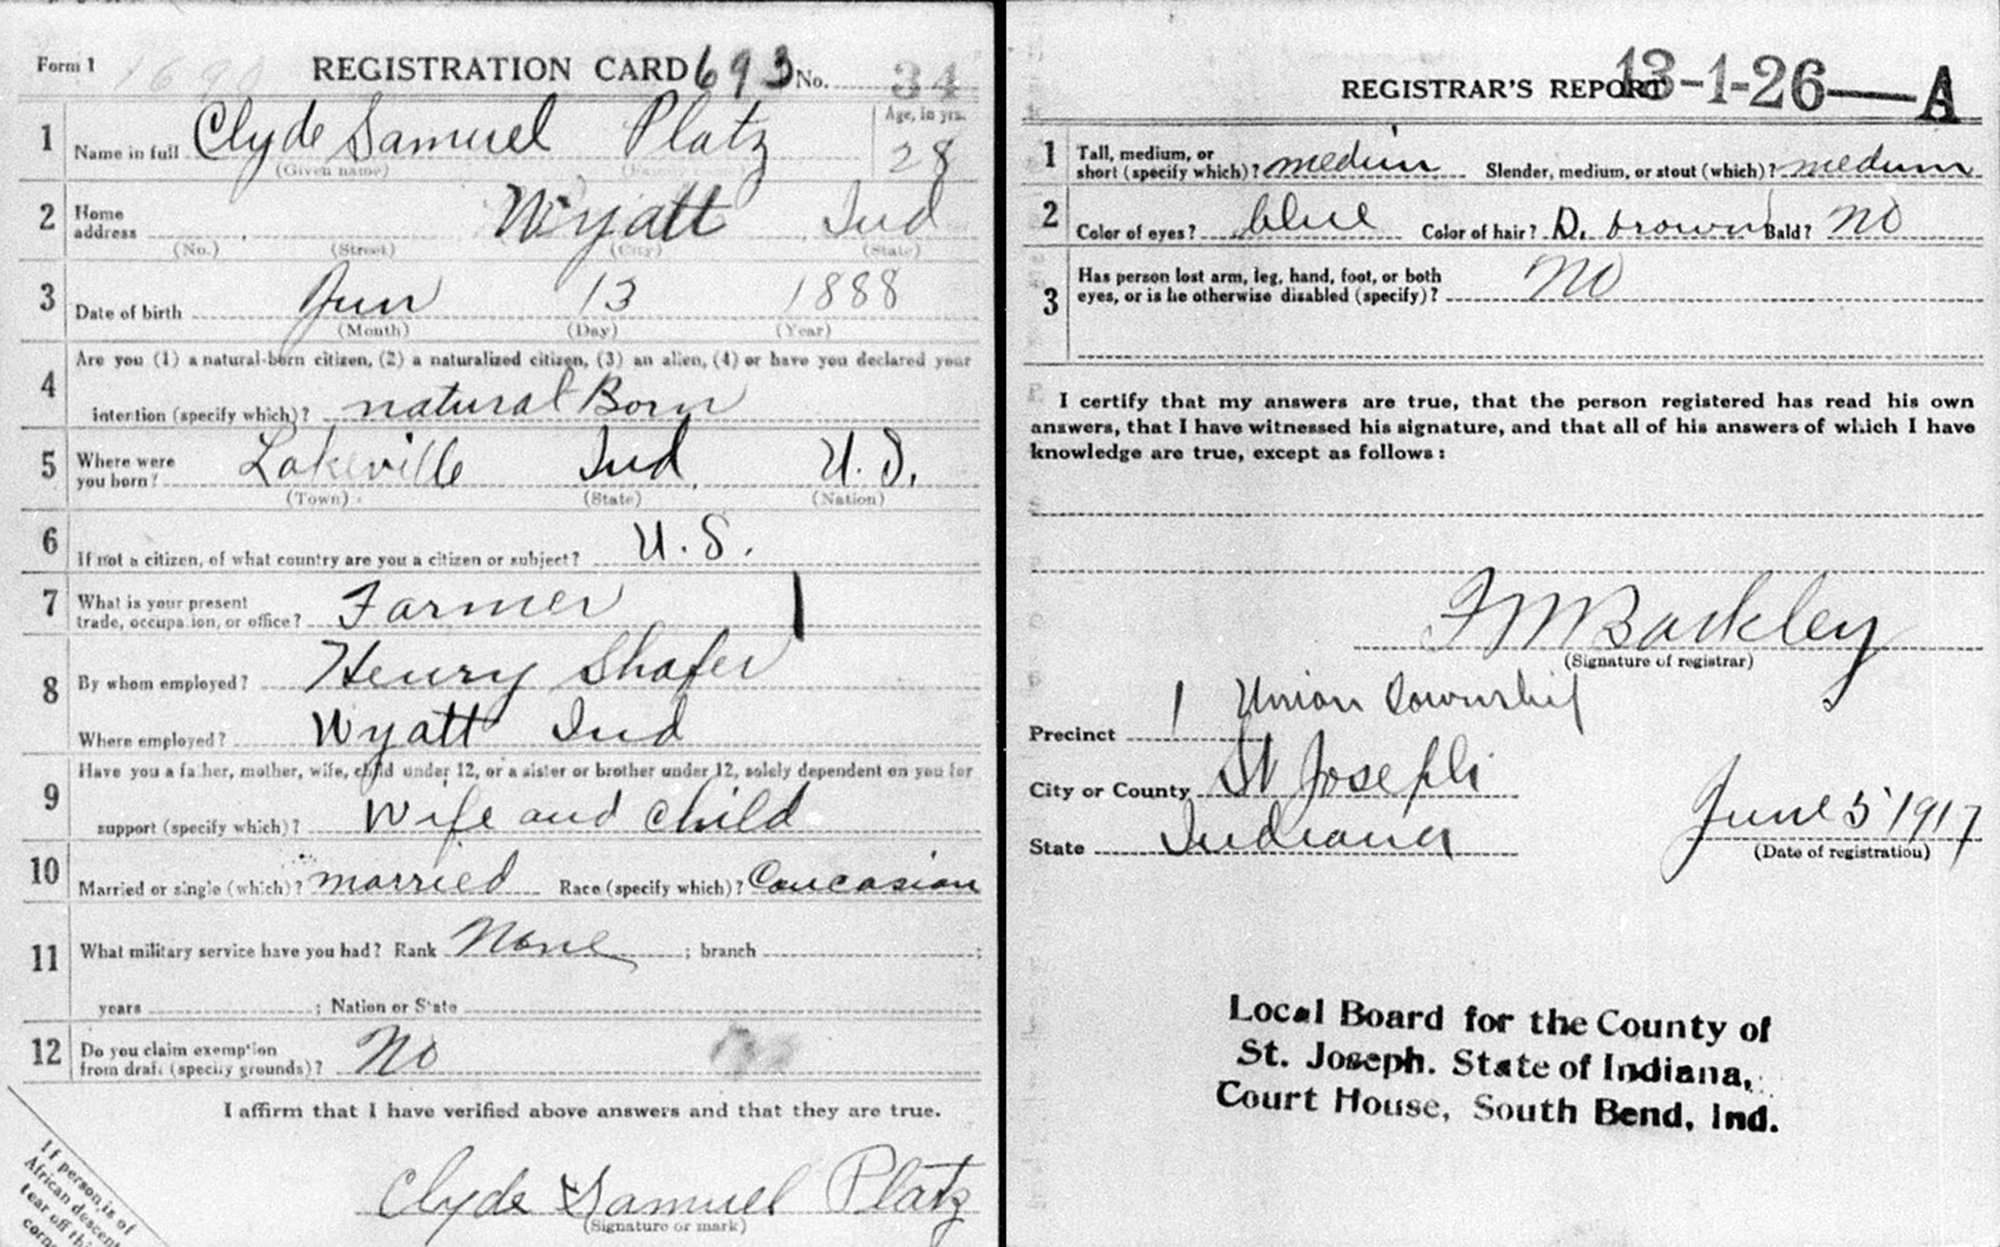 Form 1 REGISTRATION CARD 693 No. 34
1 Name in full Clyde Samuel Platz Age, in yrs. 28
(Given name) (Family name)
2 Home address Wyatt Ind
(No.) (Street) (City) (State)
3 Date of birth Jun 13 1888
(Month) (Day) (Year)
4 Are you (1) a natural-born citizen, (2) a naturalized citizen, (3) an alien, (4) or have you declared your
intention (specify which)? natural Born
5 Where were you born? Lakeville Ind. U.S.
(Town) (State) (Nation)
6 If not a citizen, of what country are you a citizen or subject? U.S.
7 What is your present
trade, occupation, or office? Farmer
8 By whom employed? Henry Shafer
Where employed? Wyatt Ind
9 Have you a father, mother, wife, child under 12, or a sister or brother under 12, solely dependent on you for
support (specify which)? Wife and child
10 Married or single (which)? married Race (specify which)? Caucasian
11 What military service have you had? Rank None ; branch ;
years ; Nation or State
12 Do you claim exemption
from draft (specify grounds)? No
I affirm that I have verified above answers and that they are true.
Clyde Samuel Platz
(Signature or mark)
If person is of
African descent
tear off this
corner
REGISTRAR'S REPORT 13-1-26-A
1 Tall, medium, or
short (specify which)? medium Slender, medium, or stout (which)? medium
2 Color of eyes? blue Color of hair? D. brown Bald? No
3 Has person lost arm, leg, hand, foot, or both
eyes, or is he otherwise disabled (specify)? No
I certify that my answers are true, that the person registered has read his own
answers, that I have witnessed his signature, and that all of his answers of which I have
knowledge are true, except as follows:
F M Barkley
(Signature of registrar)
Precinct 1 Union Township
City or County St Joseph
State Indiana June 5 1917
(Date of registration)
Local Board for the County of
St. Joseph. State of Indiana,
Court House, South Bend, Ind.